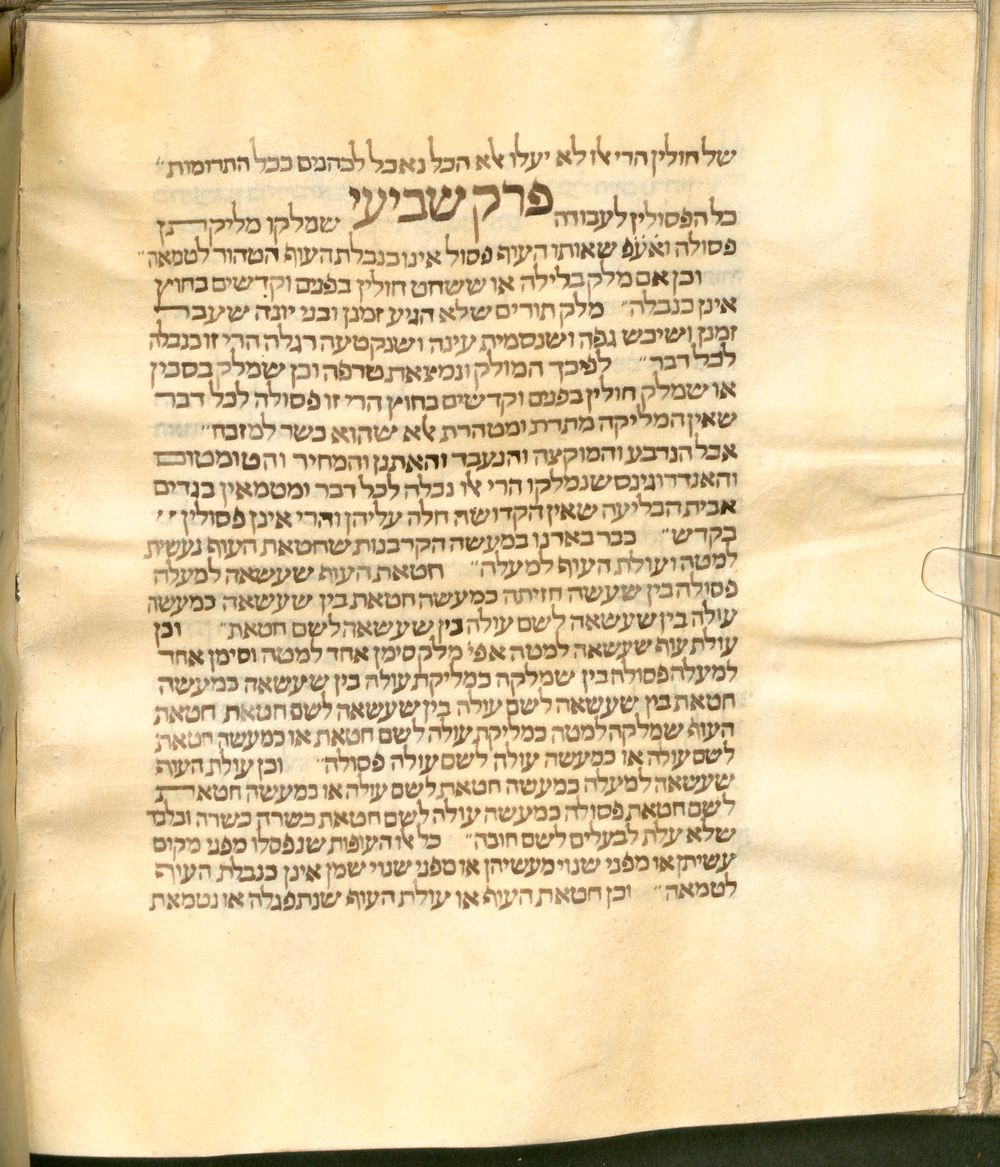 של חולין הרי אלו לא יעלו אלא הכל נאכל לכהנים ככל התרומות״
פרק שביעי
כל הפסולין לעבודה שמלקו מליקתן
פסולה ואע״פ שאותו העוף פסול אינו כנבלת העוף הטהור לטמאה״
וכן אם מלק בלילה או ששחט חולין בפנים וקדשים בחוץ
אינן כנבלה״ מלק תורים שלא הגיע זמנן ובני יונה שעבר
זמנן ושיבש גפה ושנסמית עינה ושנקטעה רגלה הרי זו כנבלה
לכל דבר״ לפיכך המולק ונמצאת טרפה וכן שמלק בסכין
או שמלק חולין בפנים וקדשים בחוץ הרי זו פסולה לכל דבר
שאין המליקה מתרת ומטהרת אלא שהוא כשר למזבח״
אבל הנרבע והמוקצה והנעבד והאתנן והמחיר והטומטום
והאנדרוגינס שנמלקו הרי אלו נבלה לכל דבר ומטמאין בגדים
אבית הבליעה שאין הקדושה חלה עליהן והרי אינן פסולין
בקדש״ כבר בארנו במעשה הקרבנות שחטאת העוף נעשית
למטה ועולת העוף למעלה״ חטאת העוף שעשאה למעלה
פסולה בין שעשה חזיתה כמעשה חטאת בין שעשאה כמעשה
עולה בין שעשאה לשם עולה בין שעשאה לשם חטאת״ וכן
עולת עוף שעשאה למטה אפי׳ מלק סימן אחד למטה וסימן אחד
למעלה פסולה בין שמלקה כמליקת עולה בין שעשאה כמעשה
חטאת בין שעשאה לשם עולה בין שעשאה לשם חטאת חטאת
העוף שמלקה למטה כמליקת עולה לשם חטאת או כמעשה חטאת
לשם עולה או כמעשה עולה לשם עולה פסולה״ וכן עולת העוף
שעשאה למעלה כמעשה חטאת לשם עולה או כמעשה חטאת
לשם חטאת פסולה כמעשה עולה לשם חטאת כשרה כשרה ובלבד
שלא עלת לבעלים לשם חובה״ כל אלו העופות שנפסלו מפני מקום
עשיתן או מפני שנוי מעשיהן או מפני שנוי שמן אינן כנבלת העוף
לטמאה״ וכן חטאת העוף או עולת העוף שנתפגלה או נטמאת